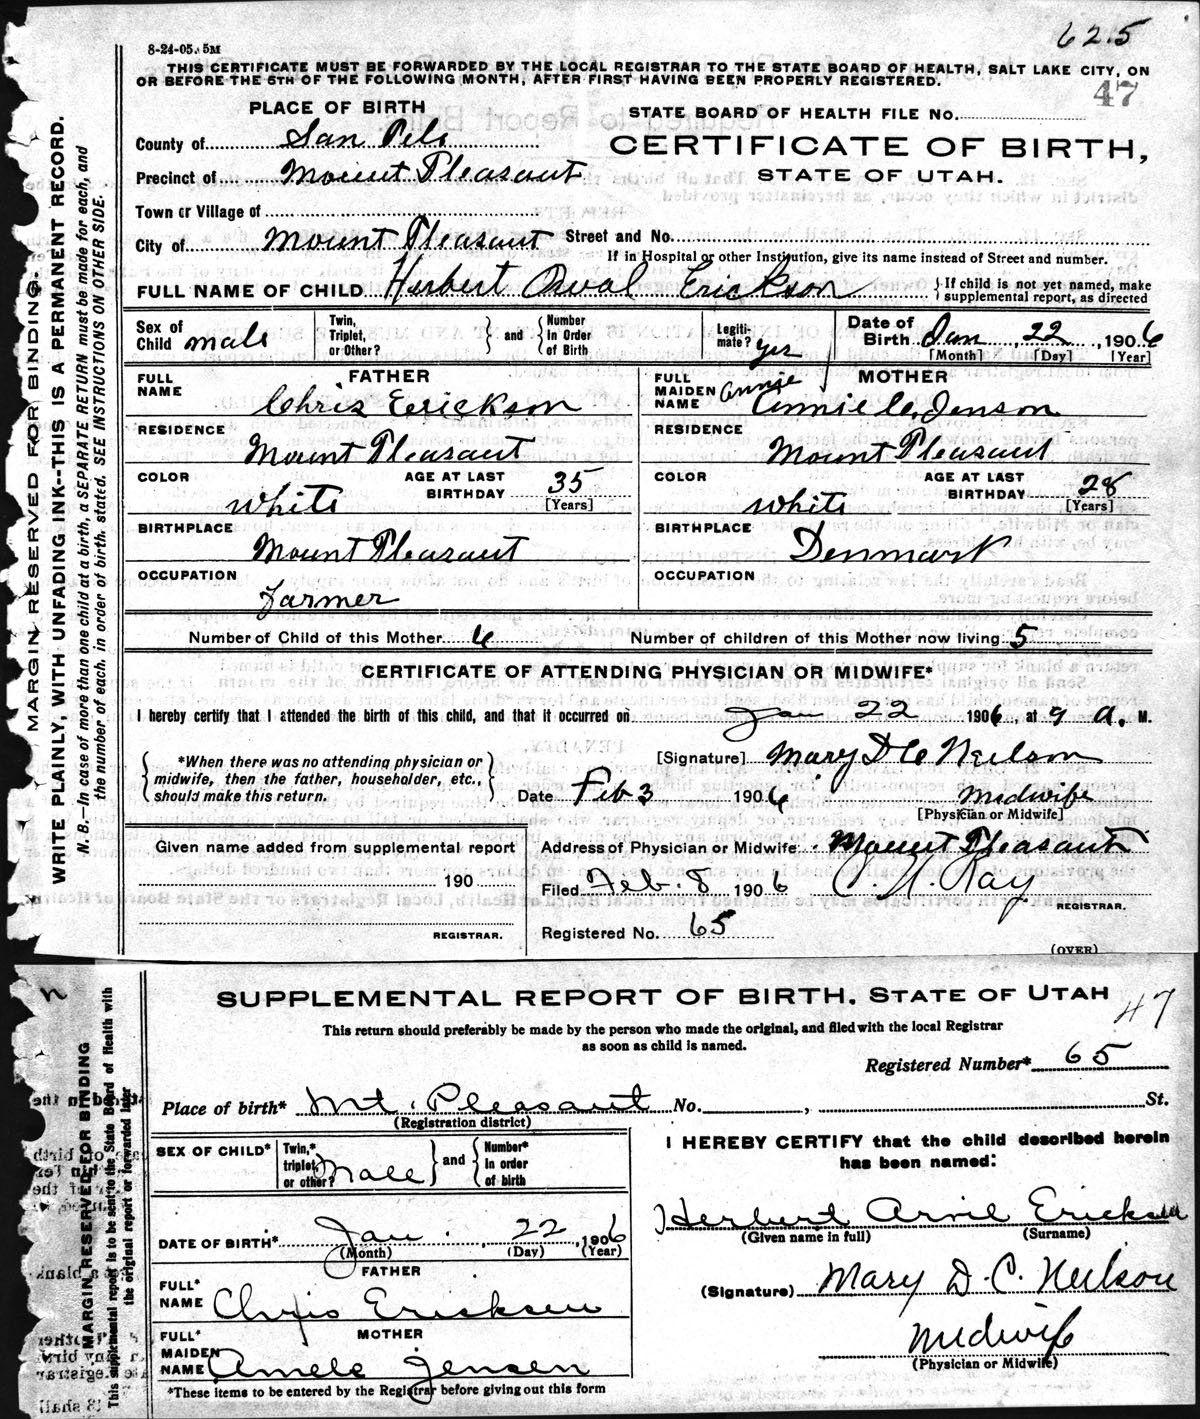 62.5
8-24-05. 5M
THIS CERTIFICATE MUST BE FORWARDED BY THE LOCAL REGISTRAR TO THE STATE BOARD OF HEALTH, SALT LAKE CITY, ON
OR BEFORE THE 5TH OF THE FOLLOWING MONTH, AFTER FIRST HAVING BEEN PROPERLY REGISTERED.
47
PLACE OF BIRTH
STATE BOARD OF HEALTH FILE No.
County of San Pete
CERTIFICATE OF BIRTH,
Precinct of Mount Pleasant
STATE OF UTAH.
Town or Village of
City of Mount Pleasant Street and No.
If in Hospital or other Institution, give its name instead of Street and number.
FULL NAME OF CHILD Herbert Orval Erickson { If child is not yet named, make
supplemental report, as directed
Sex of Child male
Twin, Triplet, or Other? } and { Number In Order of Birth
Legitimate? yes
Date of Birth Jan 22, 1906
[Month] [Day] [Year]
FATHER
FULL NAME Chris Erickson
RESIDENCE Mount Pleasant
COLOR white AGE AT LAST BIRTHDAY 35 [Years]
BIRTHPLACE Mount Pleasant
OCCUPATION Farmer
MOTHER
FULL MAIDEN NAME Annie Annie C. Jenson
RESIDENCE Mount Pleasant
COLOR white AGE AT LAST BIRTHDAY 28 [Years]
BIRTHPLACE Denmark
OCCUPATION
Number of Child of this Mother 6 Number of children of this Mother now living 5
CERTIFICATE OF ATTENDING PHYSICIAN OR MIDWIFE*
I hereby certify that I attended the birth of this child, and that it occurred on Jan 22 1906, at 9 A. M.
{ *When there was no attending physician or
midwife, then the father, householder, etc.,
should make this return. }
[Signature] Mary D C Neilson
Date Feb 3 1906 Midwife
[Physician or Midwife]
Given name added from supplemental report
190
REGISTRAR.
Address of Physician or Midwife Mount Pleasant
Filed Feb. 8 1906 C. N. Ray
REGISTRAR.
Registered No. 65
(OVER)
MARGIN RESERVED FOR BINDING.
WRITE PLAINLY, WITH UNFADING INK--THIS IS A PERMANENT RECORD.
N. B.—In case of more than one child at a birth, a SEPARATE RETURN must be made for each, and
the number of each, in order of birth, stated. SEE INSTRUCTIONS ON OTHER SIDE.
SUPPLEMENTAL REPORT OF BIRTH. STATE OF UTAH
47
This return should preferably be made by the person who made the original, and filed with the local Registrar
as soon as child is named.
Registered Number* 65
Place of birth* Mt. Pleasant No. , St.
(Registration district)
SEX OF CHILD* Twin,* triplet, or other? Male } and { Number* in order of birth
DATE OF BIRTH* Jan. 22, 1906
(Month) (Day) (Year)
FATHER
FULL* NAME Chris Ericksen
MOTHER
FULL* MAIDEN NAME Amele Jensen
*These items to be entered by the Registrar before giving out this form
I HEREBY CERTIFY that the child described herein
has been named:
Herbert Arvil Ericksen
(Given name in full) (Surname)
(Signature) Mary D. C. Neilson
Midwife
(Physician or Midwife)
MARGIN RESERVED FOR BINDING
This supplemental report is to be sent to the State Board of Health with
the original report or forwarded later